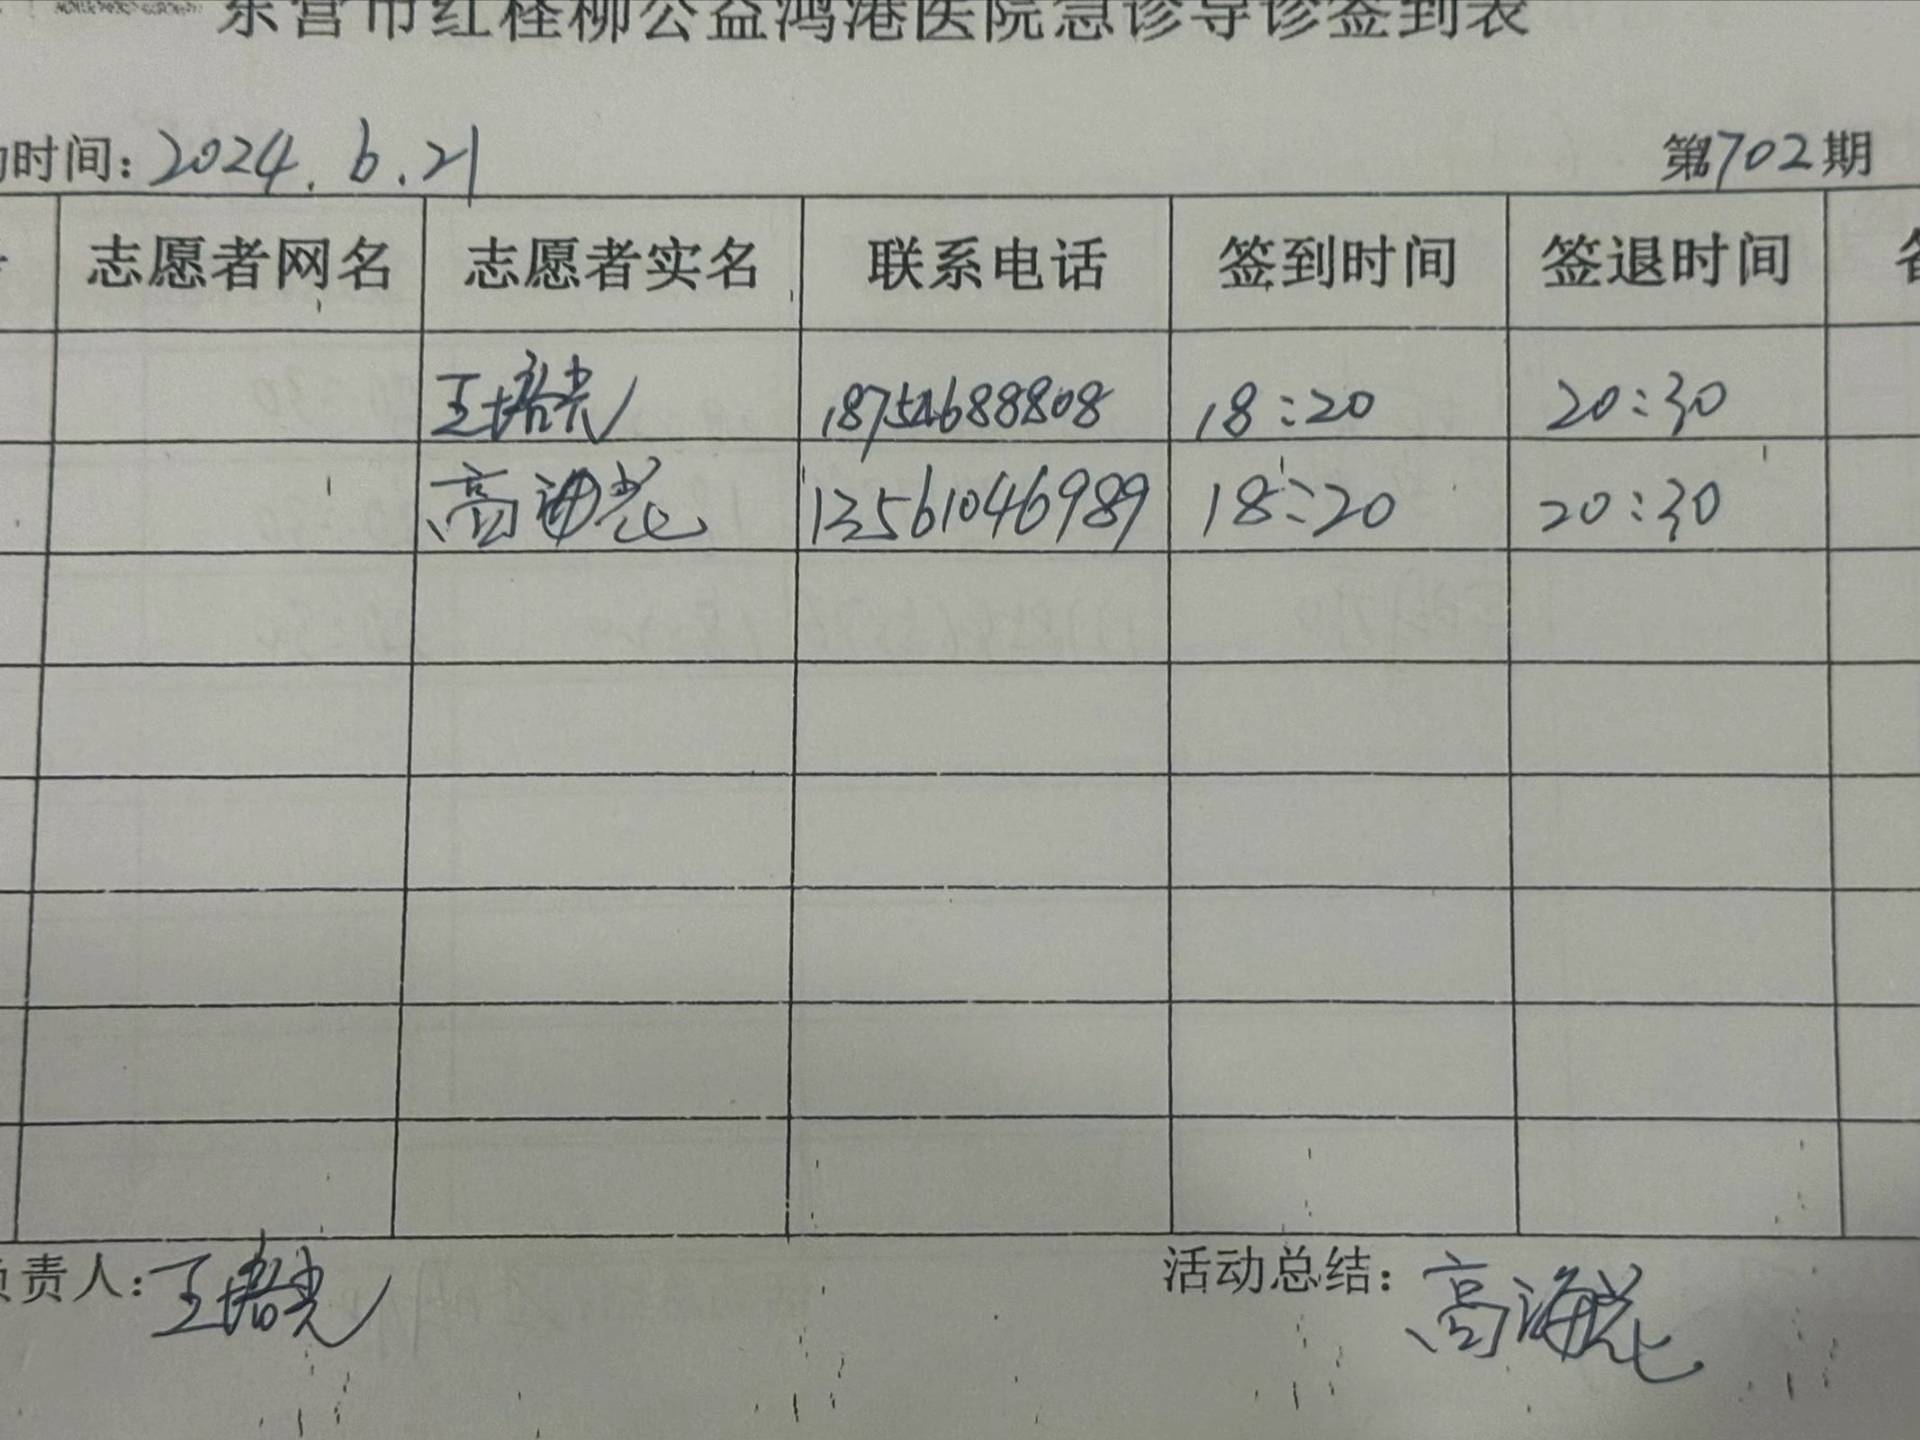 东营市红柽柳公益鸿港医院急诊导诊签到表
时间：2024.6.21 第702期
志愿者网名 志愿者实名 联系电话 签到时间 签退时间
王培光 18:20 20:30
高海 13561046989 18:20 20:30
责人：王培光 活动总结：高海